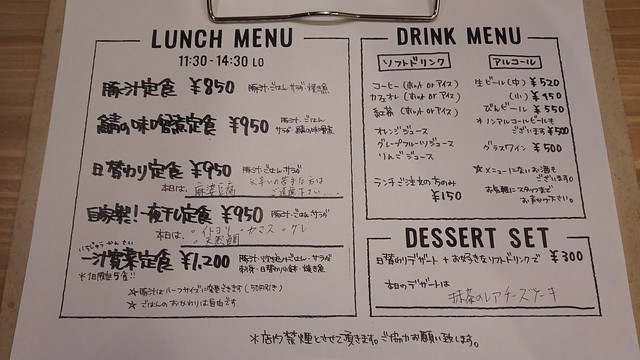 LUNCH MENU
11:30-14:30 LO
豚汁定食 ¥850 豚汁・ごはん・サラダ・焼き魚
鯖の味噌煮定食 ¥950 豚汁・ごはん
サラダ・鯖の味噌煮
日替わり定食 ¥950 豚汁・ごはん・サラダ
本日は、麻婆豆腐
ご遠慮下さい
自家製!一夜干し定食 ¥950 豚汁・ごはん・サラダ
本日は・イトヨリ・カマス・グレ
・天然鯛
いちじゅうかんさい
一汁寛菜定食 ¥1,200 豚汁・炊き込みごはん・サラダ
刺身・日替わり小鉢・焼き魚
※1日限定5食!!
☆豚汁はハーフサイズに変更できます(50円引き)
☆ごはんのおかわりは自由です
DRINK MENU
ソフトドリンク
コーヒー(ホット or アイス)
カフェオレ(ホット or アイス)
紅茶(ホット or アイス)
オレンジジュース
グレープフルーツジュース
りんごジュース
ランチご注文の方のみ
¥150
アルコール
生ビール(中) ¥520
(小) ¥450
びんビール ¥550
※ノンアルコールビールも
ございます ¥500
グラスワイン ¥500
☆メニューにないお酒も
ございます。
お気軽にスタッフまで
お声かけ下さい。
DESSERT SET
日替わりデザート+お好きなソフトドリンクで ¥300
本日のデザートは
抹茶のレアチーズケーキ
※店内禁煙とさせて頂きます。ご協力お願い致します。